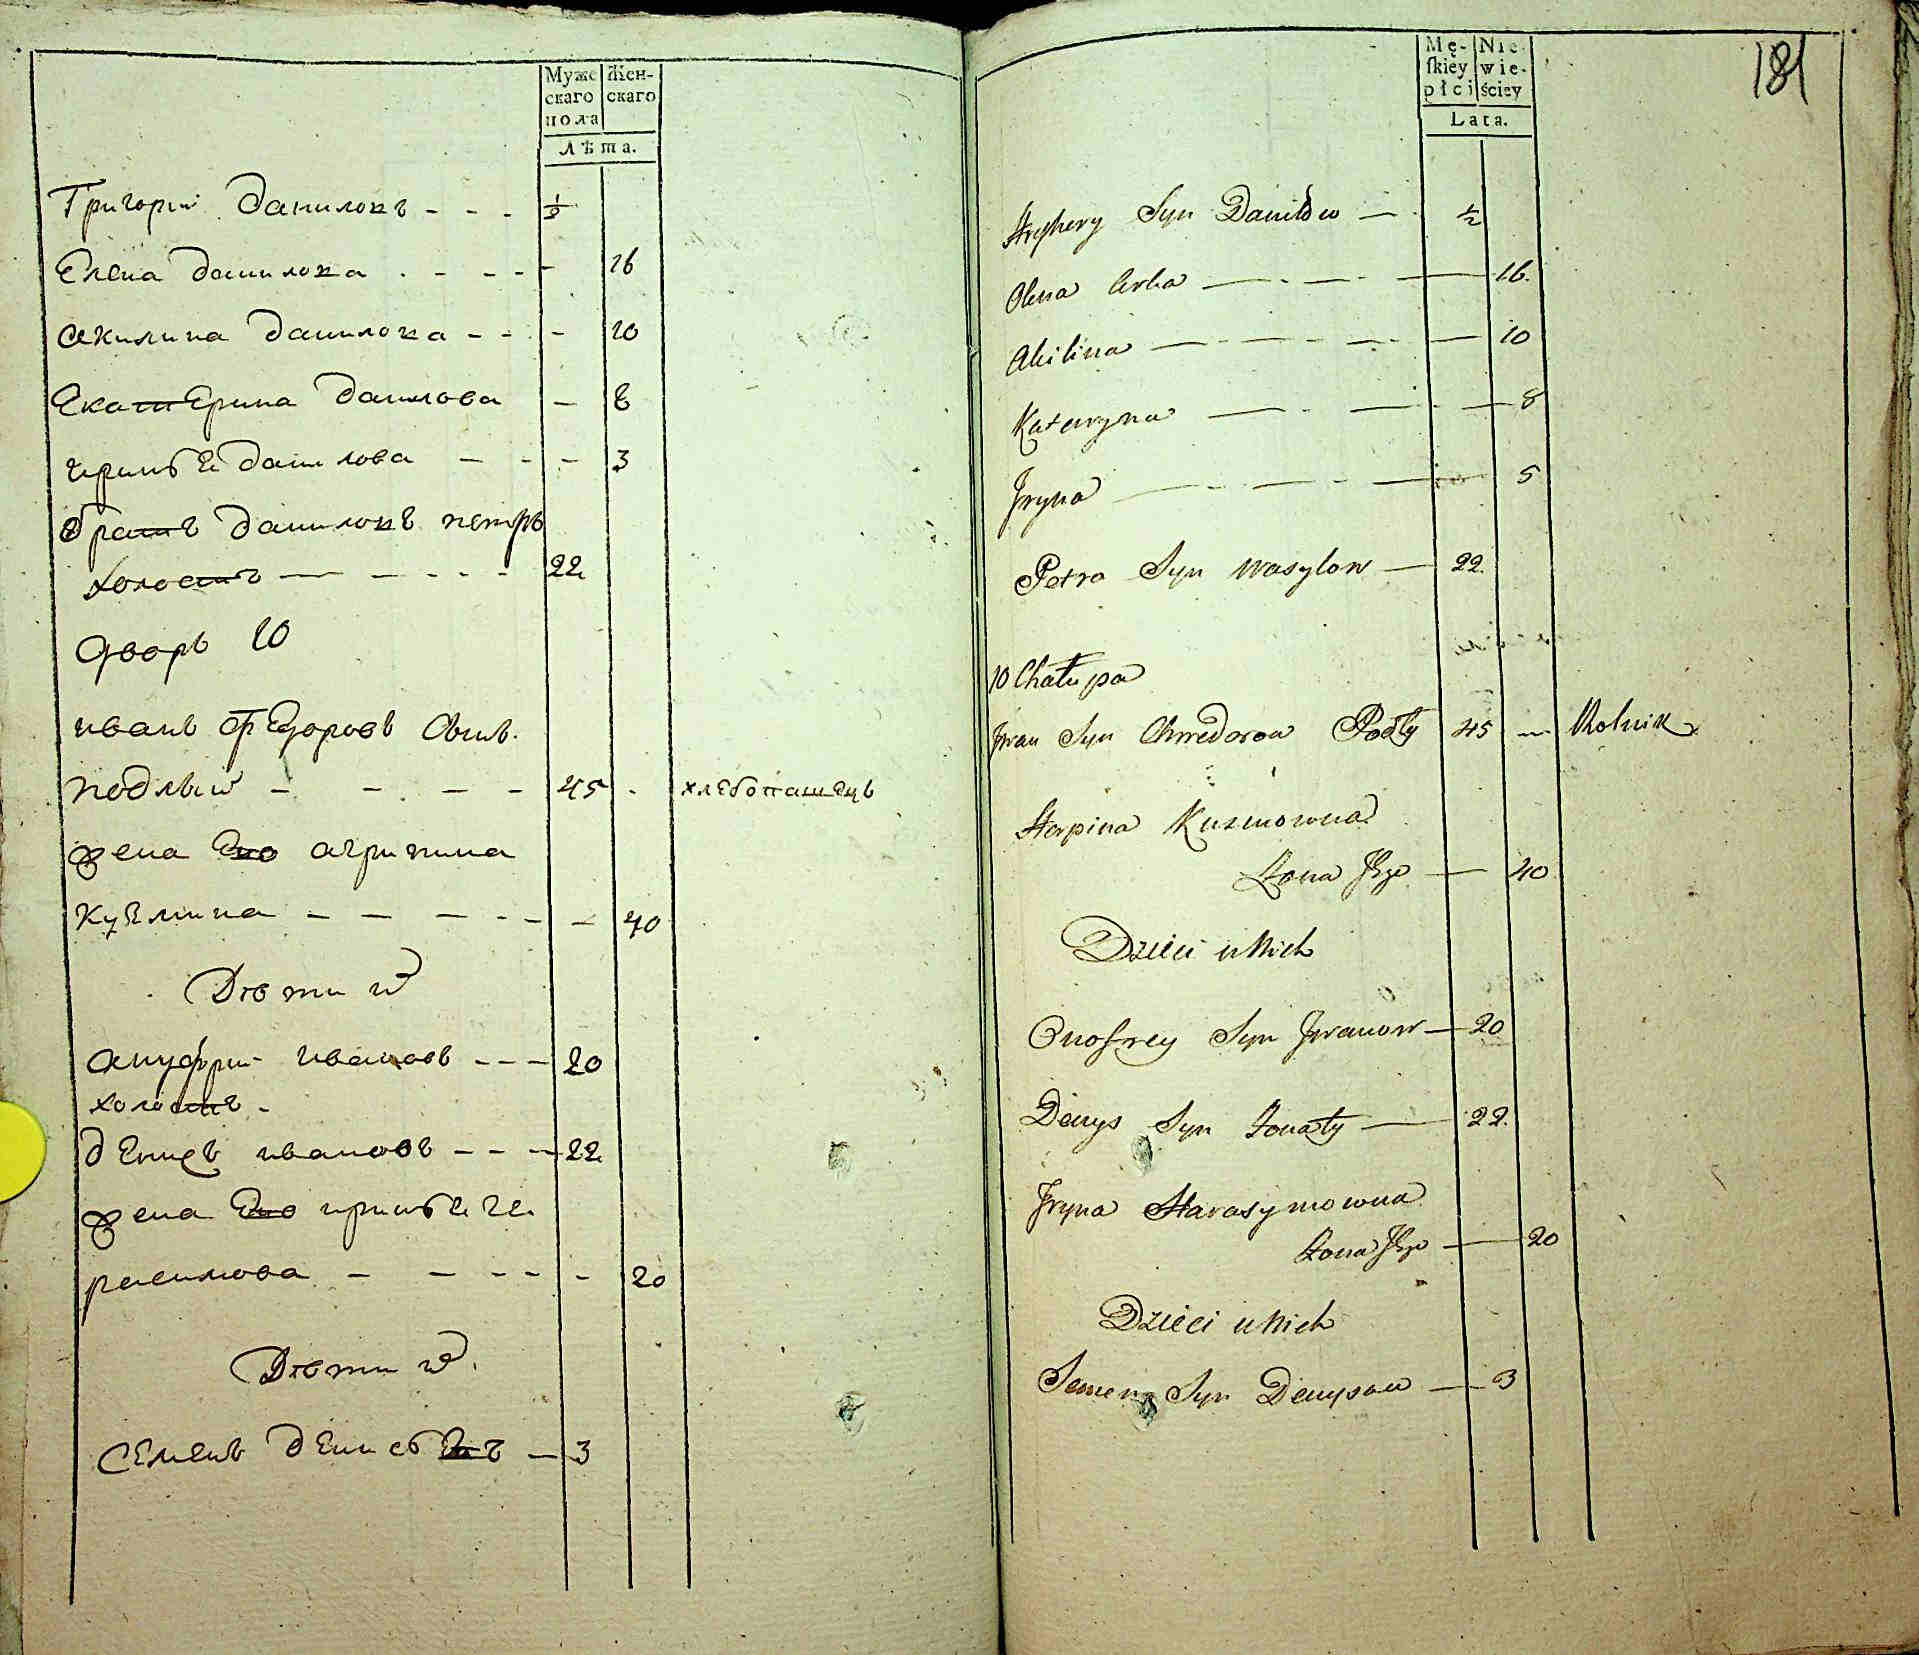 Муже
скаго
пола
Жен-
скаго
Лѣта.
Григорий Даниловъ - - - ½
Елена Данилова - - - - 16
Акилина Данилова - - - 10
Екатерина Данилова - 8
Иринѣя Данилова - - - 3
братъ Даниловъ петръ
холостъ - - - - - 22
Дворъ 10
иванъ Федоровъ Сынъ.
подлый - - - - 45 - хлебопашецъ
жена Его агрипина
Кузмина - - - - - - 40
Дѣти их
Ануфрий ивановъ - - - 20
холостъ -
денисъ ивановъ - - - 22
жена Его иринѣя ге.
расимова - - - - - 20
Дѣти их
Семенъ денисѣевъ - 3
Mę-
skiey
płci
Nie
wie-
ściey
Lata.
181
Hryhery Syn Daniłow — ½
Olena Corka — - — - — 16.
Akilina — - — - — - — 10
Kateryna — - — - — 8
Jryna — - — - — 5
Petro Syn Wasylow — 22.
10 Chałupa
Jwan Syn Chwedorow Podły 45 — Rolnik
Harpina Kuzmowna
Żona Jego — 40
Dzieci u Nich
Onofrey Syn Jwanow — 20
Denys Syn Żonaty — 22.
Jryna Harasymowna
Żona Jego — 20
Dzieci u Nich
Semen Syn Denysow — 3